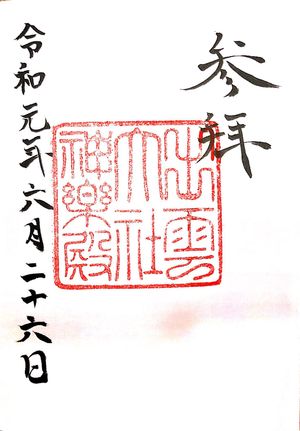 参拝
出雲
大社
神楽殿
令和元年六月二十六日